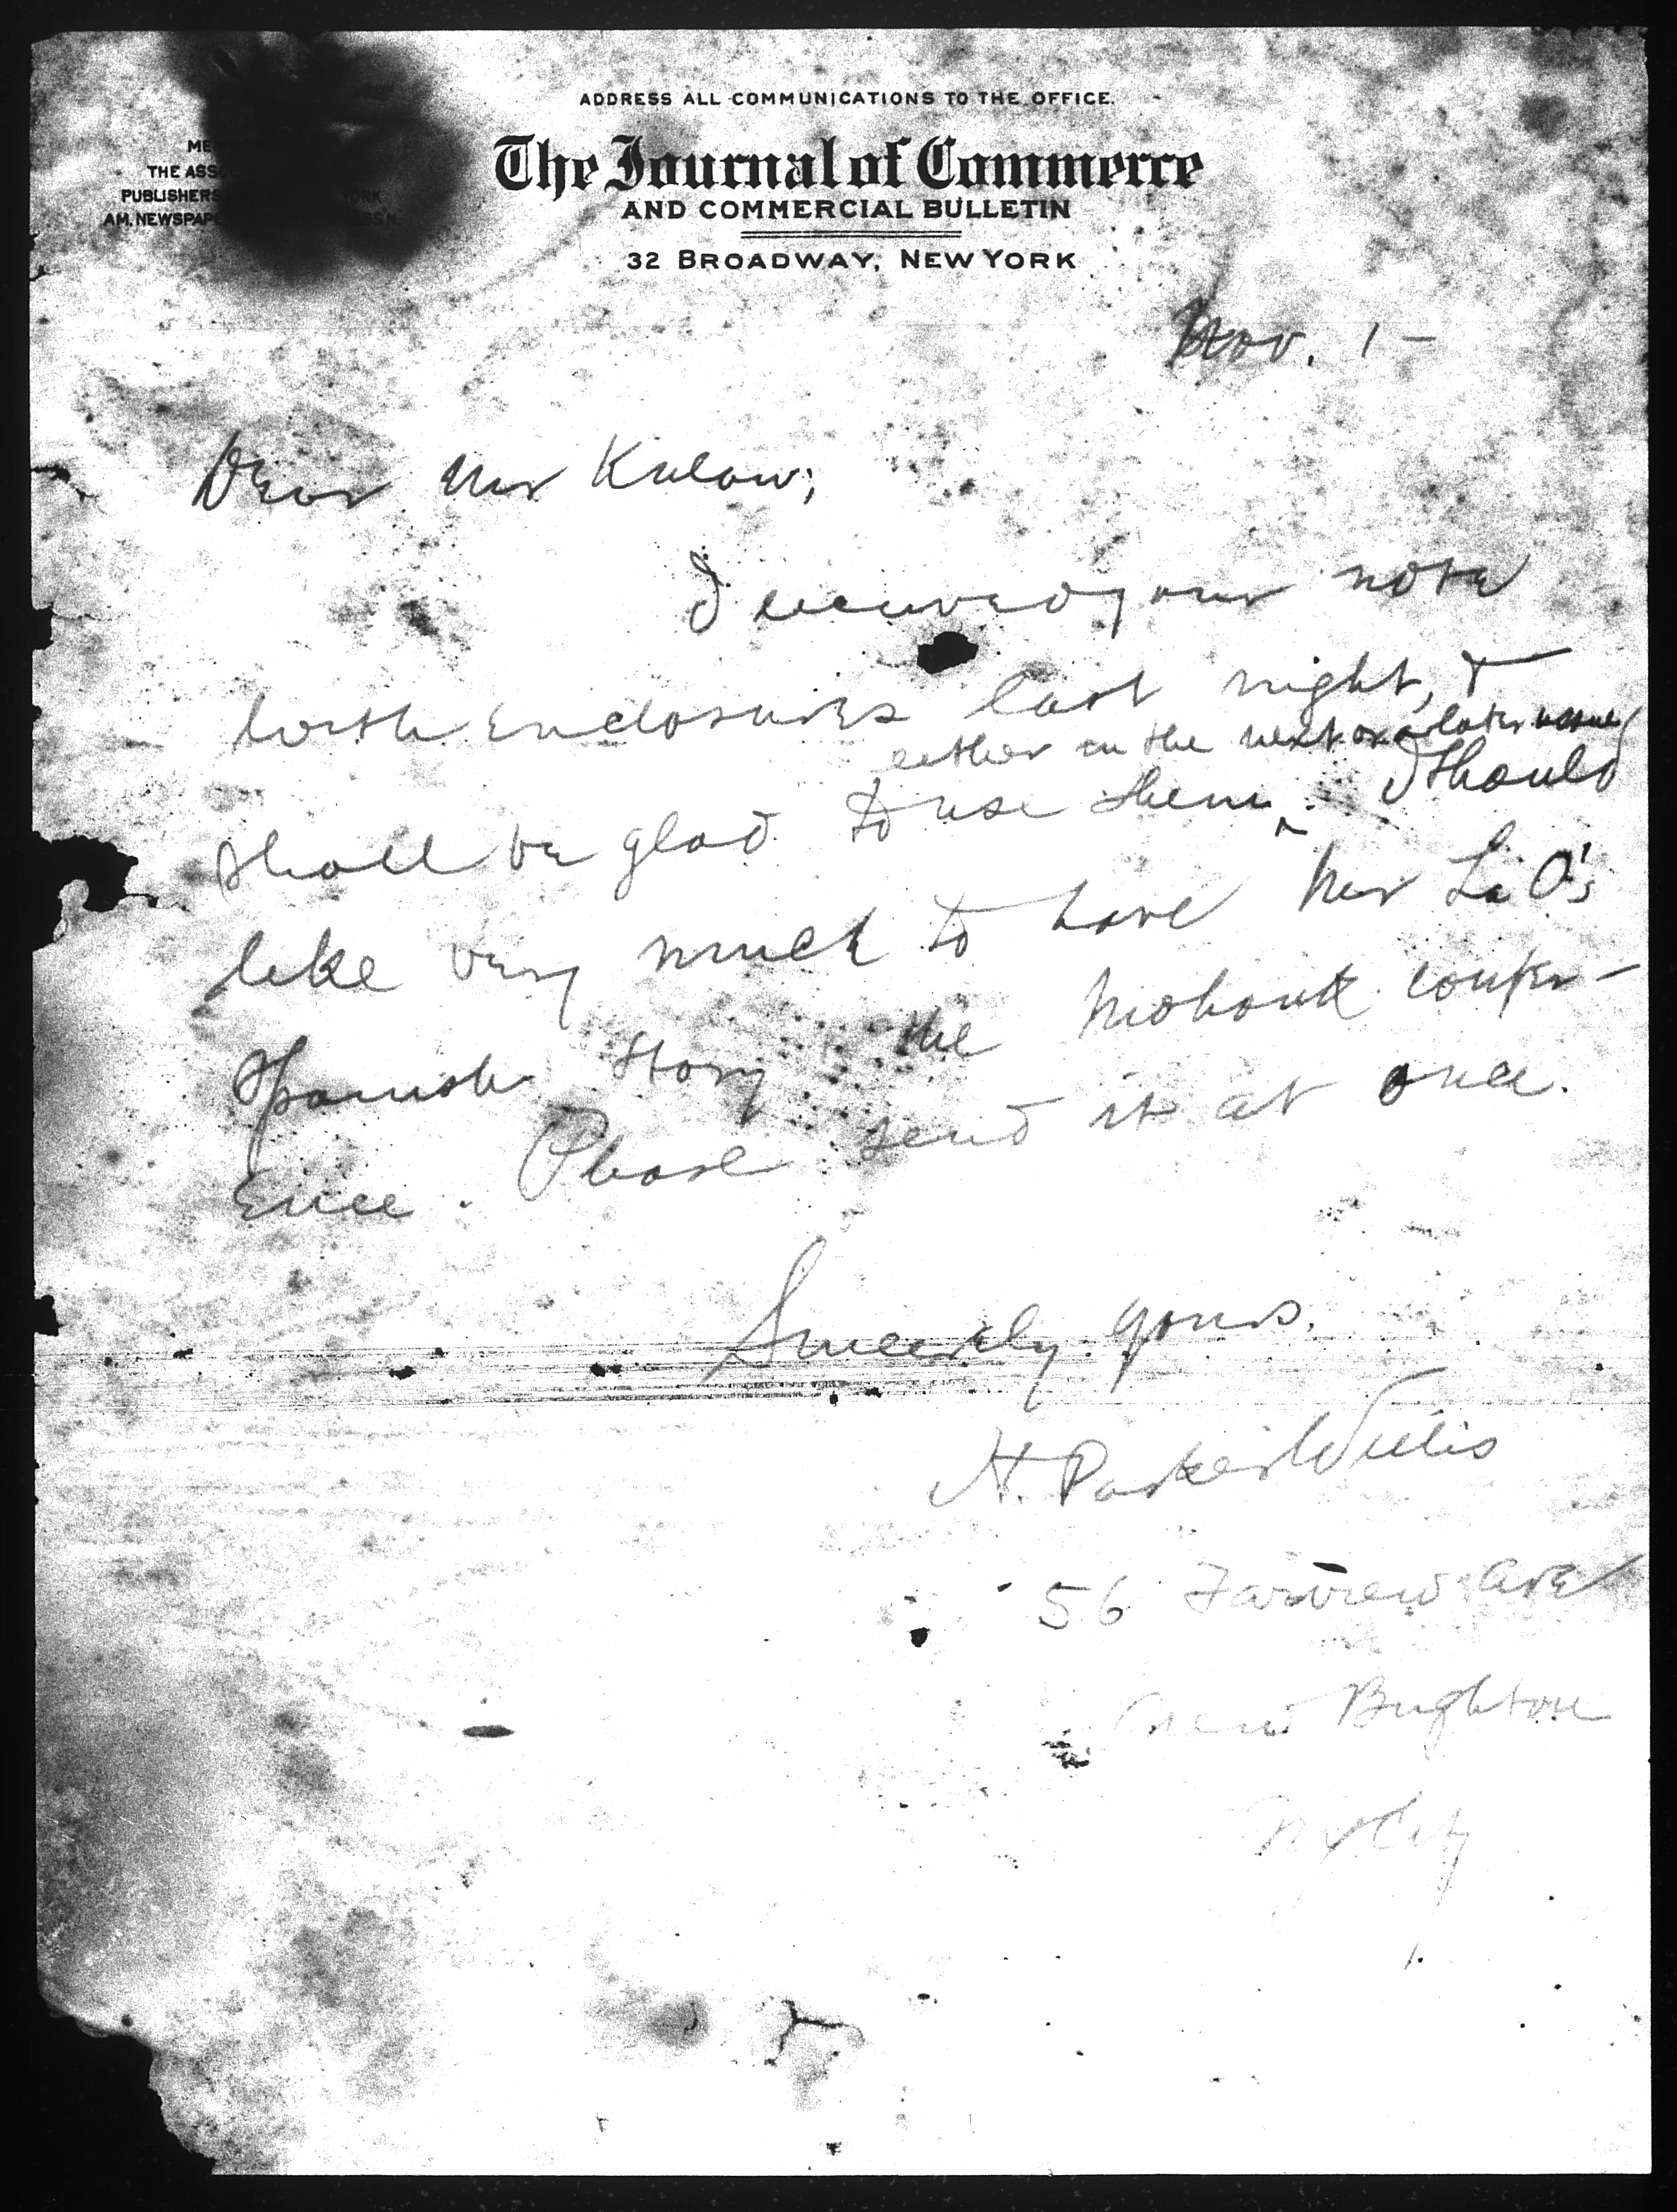 ADDRESS ALL COMMUNICATIONS TO THE OFFICE.
The Journal of Commerce
AND COMMERCIAL BULLETIN
32 BROADWAY, NEW YORK
THE ASSO
PUBLISHERS YORK
AM. NEWSPAPE ASS'N.
Nov. 1 -
Dear Mr
I received your note
with enclosures last night, &
either in the next or a later issue
shall be glad to use them. I should
like very much to have Mr
Spanish story the Mohonk confer-
ence. Please send it at once.
Sincerely yours,
H. Parker Willis
56 Fairview Ave
New Brighton
NY City